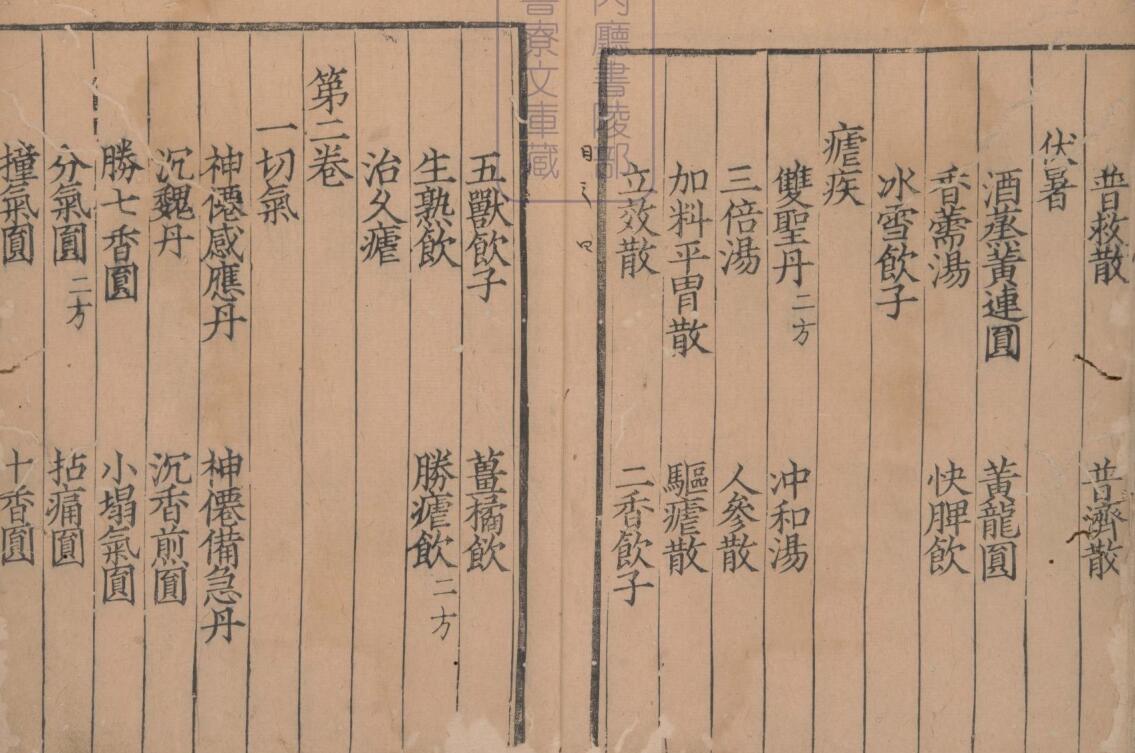 普救散 普濟散
伏暑
酒蒸黄連圓 黄龍圓
香薷湯 快脾飲
冰雪飲子
瘧疾
雙聖丹二方 冲和湯
三倍湯 人參散
加料平胃散 驅瘧散
立效散 二香飲子
内廳書陵部
書寮文庫藏
五獸飲子 薑橘飲
生熟飲 勝瘧飲二方
治久瘧
第二卷
一切氣
神僊感應丹 神僊備急丹
沉魏丹 沉香煎圓
勝七香圓 小塌氣圓
分氣圓二方 拈痛圓
撞氣圓 十香圓